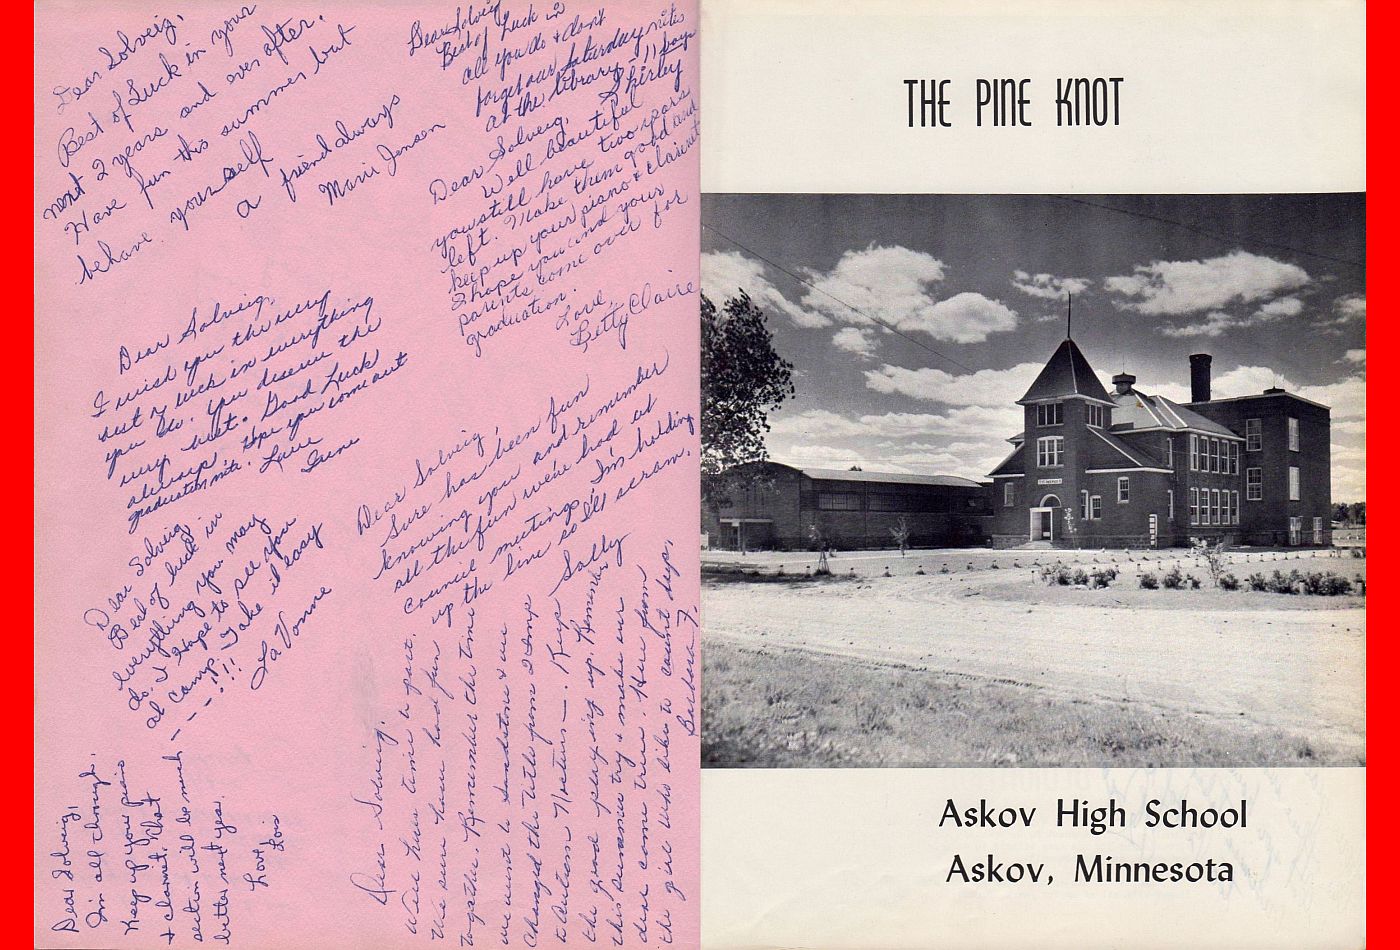 Dear Solveig,
Best of Luck in your
next 2 years and ever after.
Have fun this summer but
behave yourself
a friend always
Marie Jensen
Dear Solveig
Best of Luck in
all you do & don't
forget our Saturday nites
at the library - !! boys
Shirley
Dear Solveig,
Well beautiful
you still have two years
left. Make them good and
keep up your piano & clarinet
I hope you and your
parents come over for
graduation.
Love,
Betty Claire
Dear Solveig,
I wish you the very
best of luck in everything
you do. You deserve the
very best. Good Luck
always. Hope you come out
graduation nite.
Love
June
Dear Solveig,
Sure has been fun
knowing you and remember
all the fun we've had at
council meetings, I'm holding
up the line so I'll scram.
Sally
Dear Solveig
Best of luck in
everything you may
do. I Hope to see you
at camp. Take it easy
- - - !!!
LaVonne
Dear Solveig,
I'm all through.
Keep up your piano
& clarinet. That
section will be much
better next year.
Love,
Lois
Dear Solveig,
Well here's time to part.
We sure have had fun
together. Remember the time
we went to Sandstone & we
changed the title from
to
the good playing up. Remember
this summer try & make our
dear come true. Here from
the girl who likes to count days,
Barbara F.
THE PINE KNOT
Askov High School
Askov, Minnesota